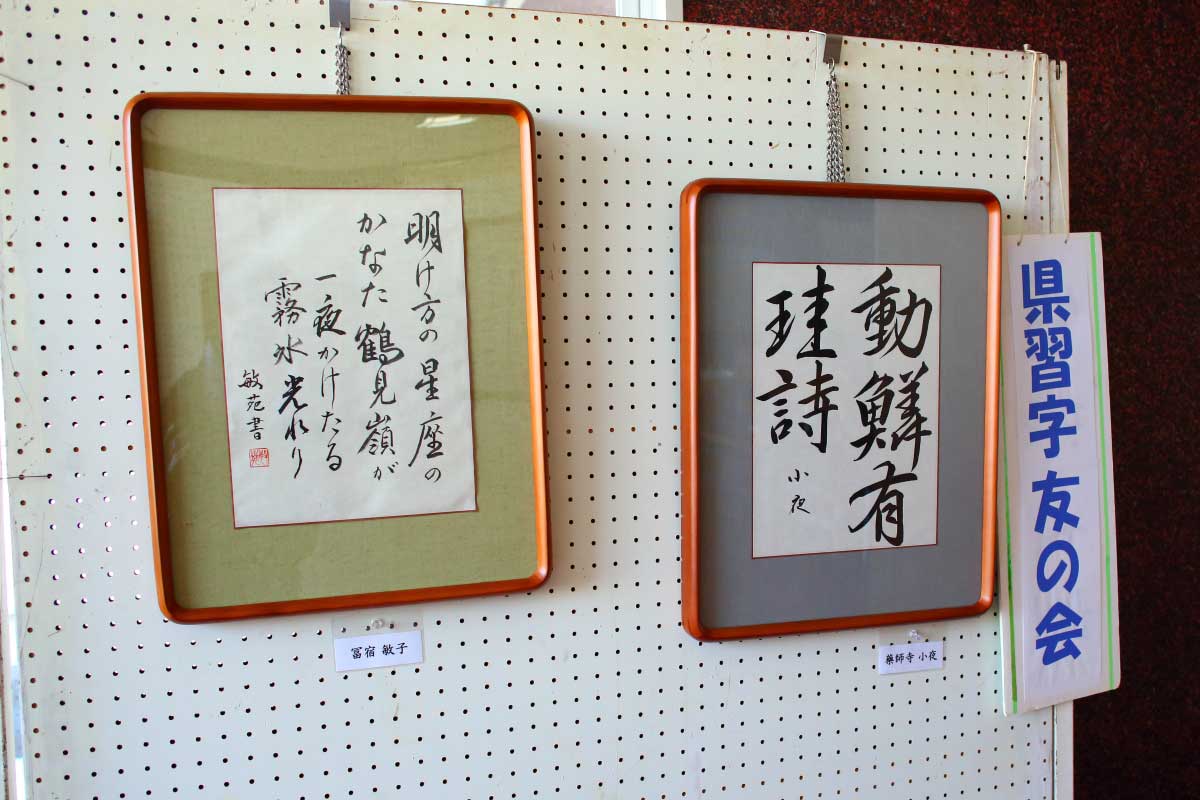 明け方の星座の
かなた鶴見嶺が
一夜かけたる
霧氷光れり
敏苑書
冨宿 敏子
動鮮有
珪詩
小夜
藥師寺 小夜
県習字友の会